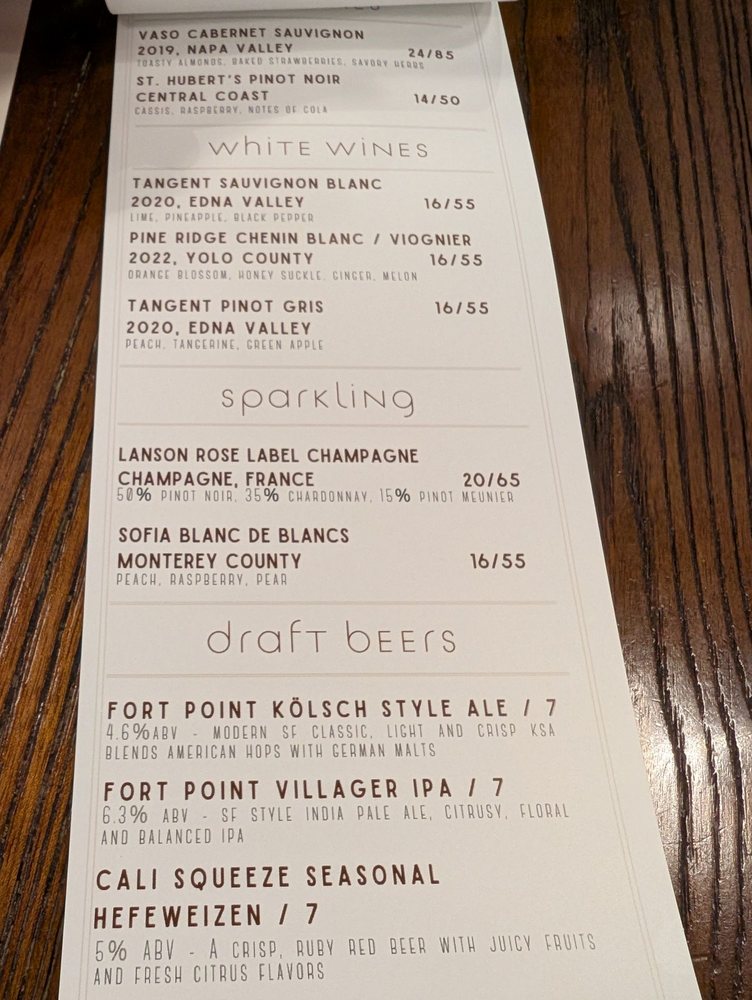 VASO CABERNET SAUVIGNON
2019, NAPA VALLEY 24/85
TOASTY ALMONDS, BAKED STRAWBERRIES, SAVORY HERBS
ST. HUBERT'S PINOT NOIR
CENTRAL COAST 14/50
CASSIS, RASPBERRY, NOTES OF COLA
WHITE WINES
TANGENT SAUVIGNON BLANC
2020, EDNA VALLEY 16/55
LIME, PINEAPPLE, BLACK PEPPER
PINE RIDGE CHENIN BLANC / VIOGNIER
2022, YOLO COUNTY 16/55
ORANGE BLOSSOM, HONEY SUCKLE, GINGER, MELON
TANGENT PINOT GRIS 16/55
2020, EDNA VALLEY
PEACH, TANGERINE, GREEN APPLE
SPARKLING
LANSON ROSE LABEL CHAMPAGNE
CHAMPAGNE, FRANCE 20/65
50% PINOT NOIR, 35% CHARDONNAY, 15% PINOT MEUNIER
SOFIA BLANC DE BLANCS
MONTEREY COUNTY 16/55
PEACH, RASPBERRY, PEAR
DRAFT BEERS
FORT POINT KÖLSCH STYLE ALE / 7
4.6%ABV - MODERN SF CLASSIC, LIGHT AND CRISP KSA
BLENDS AMERICAN HOPS WITH GERMAN MALTS
FORT POINT VILLAGER IPA / 7
6.3% ABV - SF STYLE INDIA PALE ALE, CITRUSY, FLORAL
AND BALANCED IPA
CALI SQUEEZE SEASONAL
HEFEWEIZEN / 7
5% ABV - A CRISP, RUBY RED BEER WITH JUICY FRUITS
AND FRESH CITRUS FLAVORS